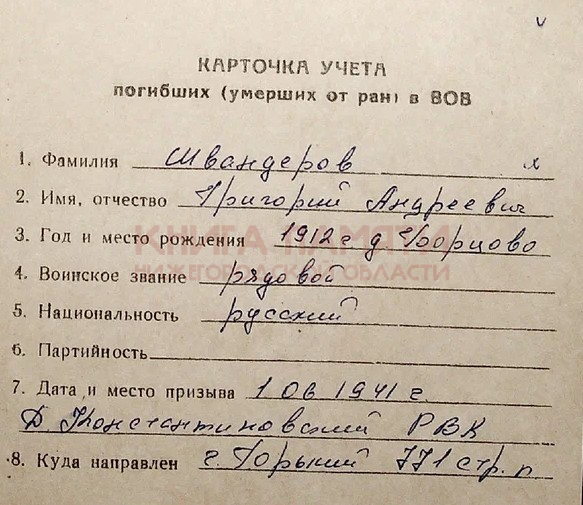 КАРТОЧКА УЧЕТА
погибших (умерших от ран) в ВОВ
1. Фамилия Швандеров
2. Имя, отчество Григорий Андреевич
3. Год и место рождения 1912 г. д. Борцово
КНИГА ПАМЯТИ
НИЖЕГОРОДСКОЙ ОБЛАСТИ
4. Воинское звание рядовой
5. Национальность русский
6. Партийность
7. Дата и место призыва 1 06 1941 г.
Д. Константиновский РВК
8. Куда направлен г. Горький 771 стр. п